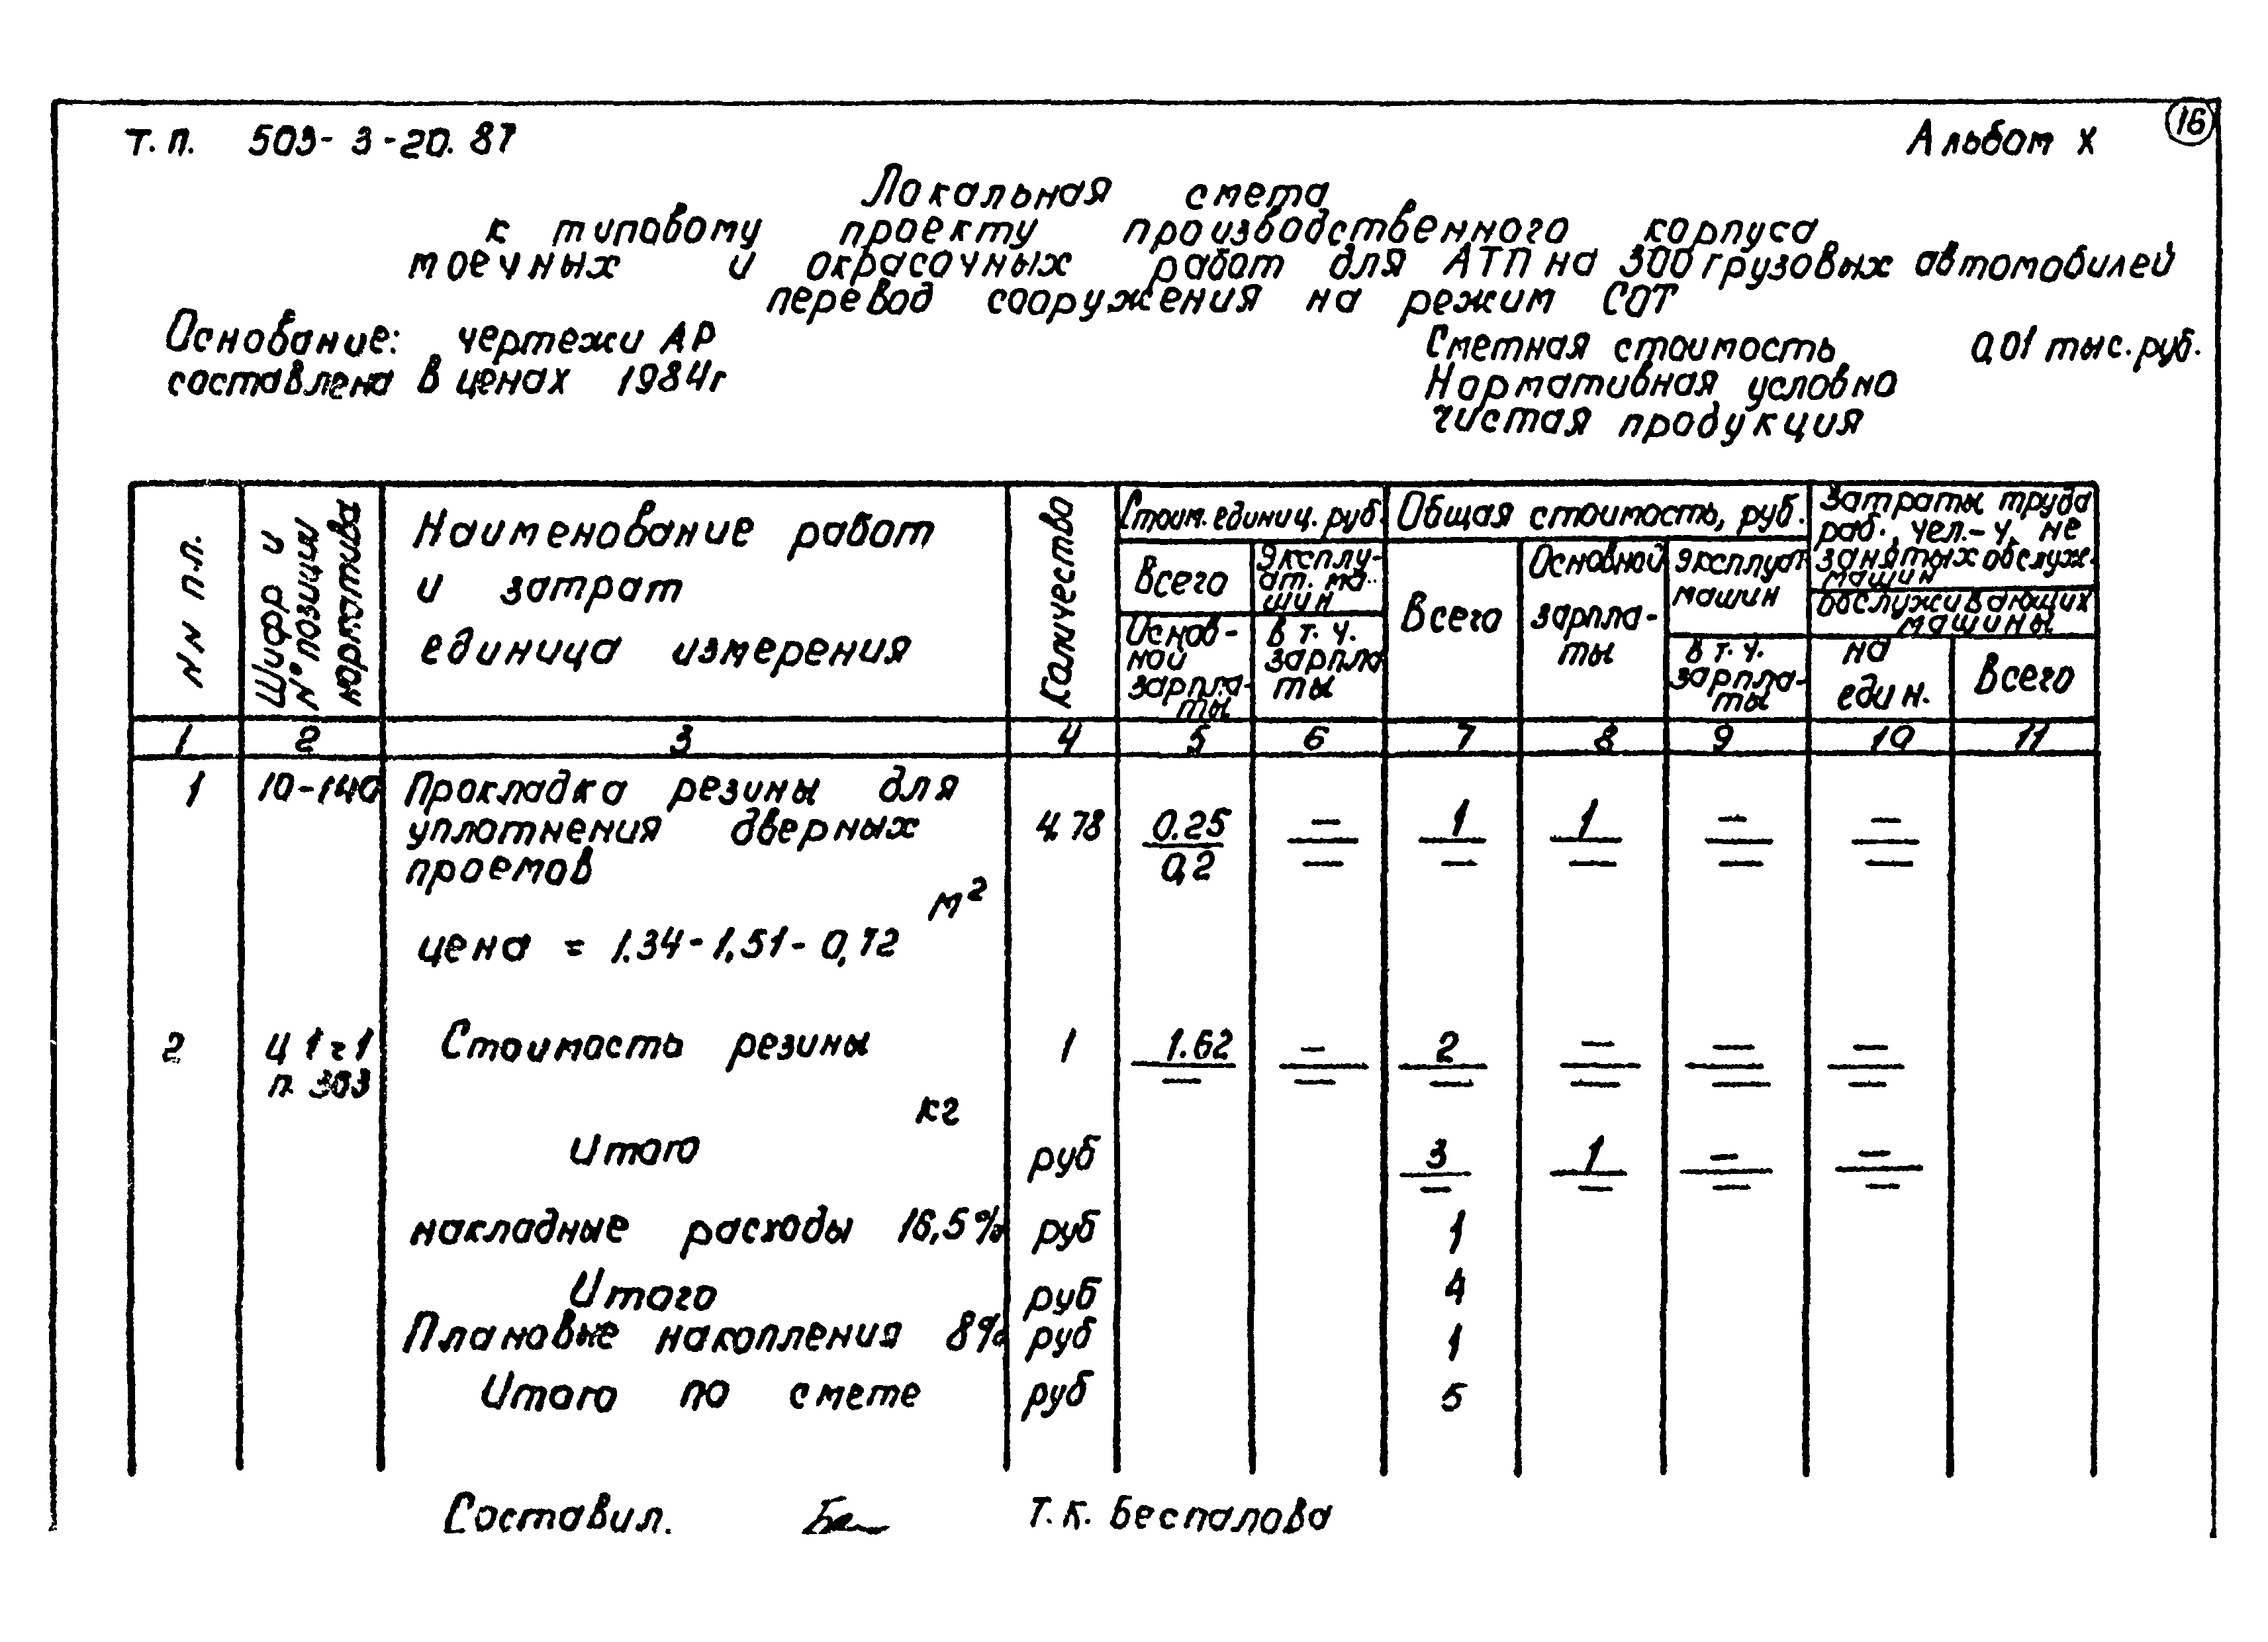 Т.П. 503-3-20.87 Альбом X 16
Локальная смета
к типовому проекту производственного корпуса
моечных и окрасочных работ для АТП на 300 грузовых автомобилей
перевод сооружения на режим СОТ
Основание: чертежи АР Сметная стоимость 0,01 тыс. руб.
составлена в ценах 1984г Нормативная условно
чистая продукция
NN п.п.
Шифр и
N° позиции
норматива
Наименование работ
и затрат
единица измерения
Количество
Стоим. единиц. руб.
Всего
Эксплу-
ат. ма-
шин
Основ-
ной
зарпла-
ты
в т. ч.
зарпла
ты
Общая стоимость, руб.
Всего
Основной
зарпла-
ты
Эксплуат
машин
в т. ч.
зарпла-
ты
Затраты труда
раб., чел.-ч. не
занятых обслуж.
машин
обслуживающих
машины
на
един.
Всего
1 2 3 4 5 6 7 8 9 10 11
1 10-140 Прокладка резины для
уплотнения дверных 4,78 0.25 — 1 1 — —
проемов 0,2 — — — — —
м²
цена = 1.34-1,51-0,72
2 Ц 1ч1 Стоимость резины 1 1.62 — 2 — — —
п. 303 — — — — — —
кг
Итого руб 3 1 — —
— — — —
накладные расходы 16,5% руб 1
Итого руб 4
Плановые накопления 8% руб 1
Итого по смете руб 5
Составил. Т.К. Беспалова